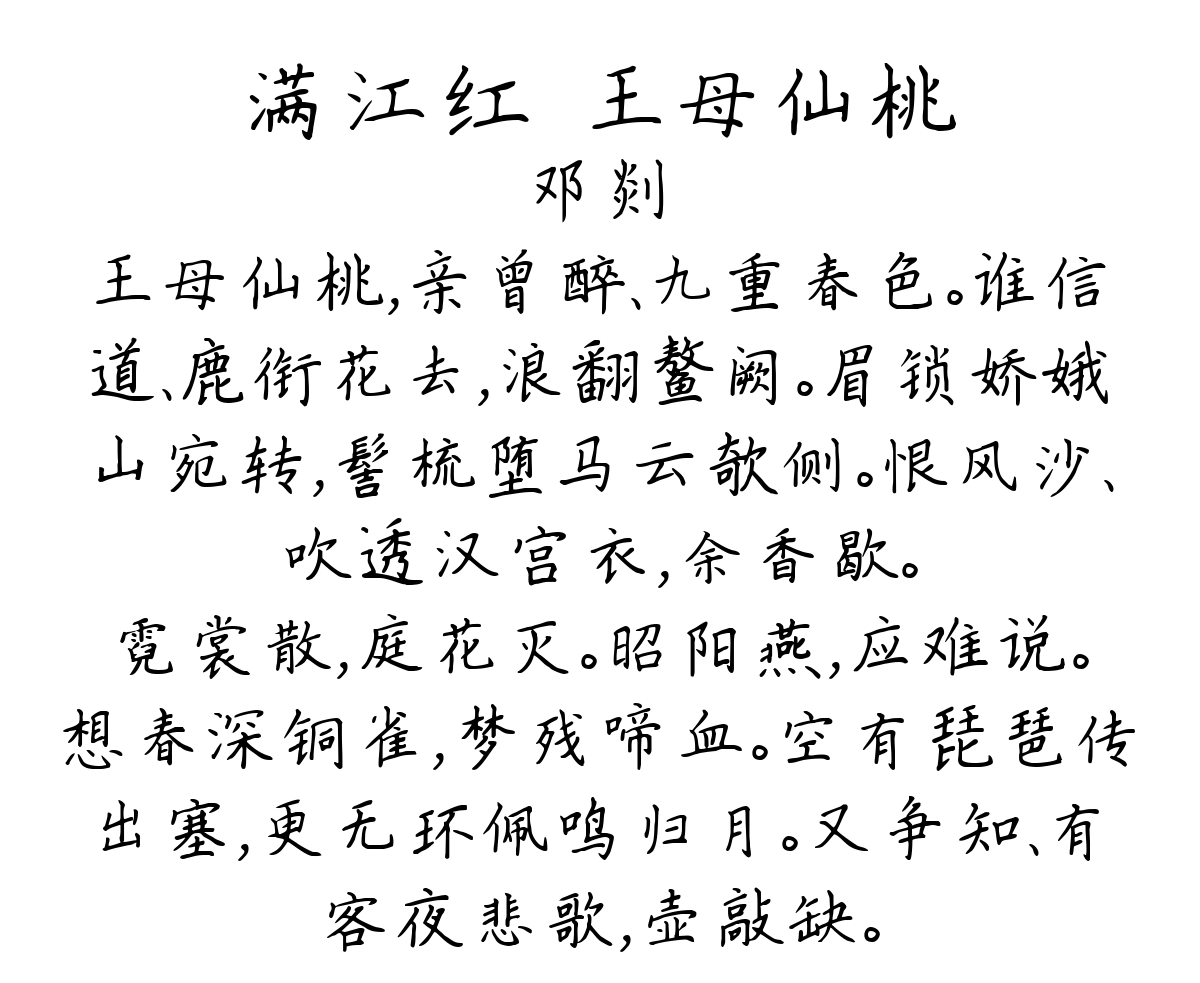 满江红 王母仙桃
邓剡
王母仙桃,亲曾醉、九重春色。谁信
道、鹿衔花去,浪翻鳌阙。眉锁娇娥
山宛转,髻梳堕马云欹侧。恨风沙、
吹透汉宫衣,余香歇。
霓裳散,庭花灭。昭阳燕,应难说。
想春深铜雀,梦残啼血。空有琵琶传
出塞,更无环佩鸣归月。又争知、有
客夜悲歌,壶敲缺。